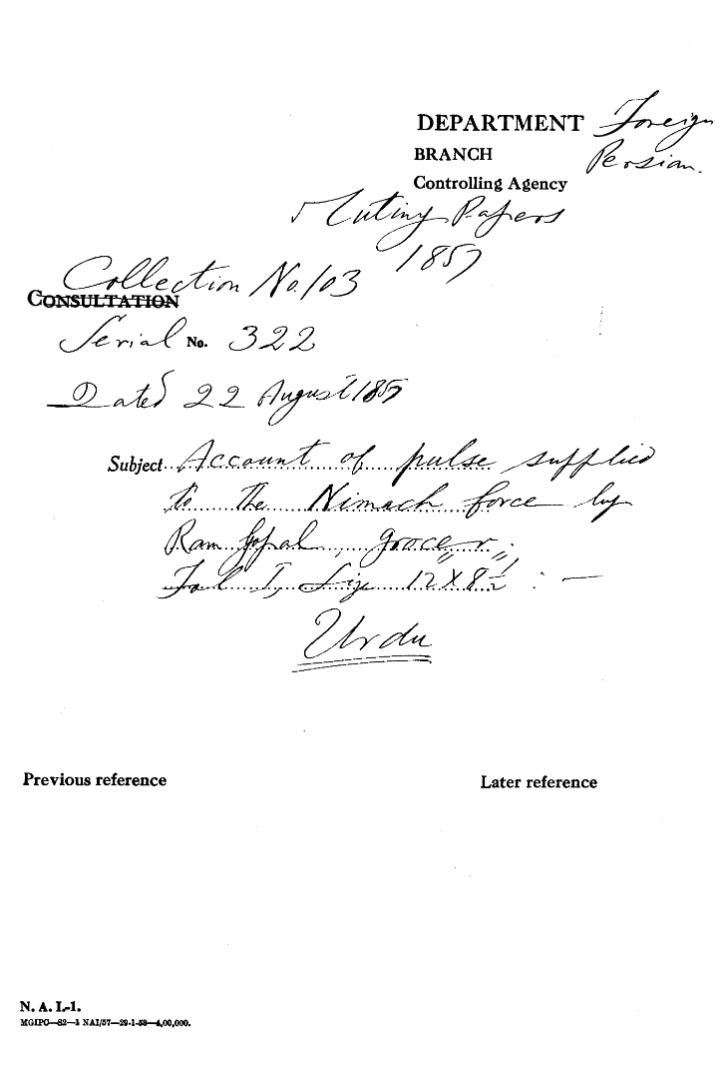 DEPARTMENT Foreign
BRANCH Persian.
Controlling Agency
Mutiny Papers
1857
Collection No. 103
CONSULTATION
Serial No. 322
Dated 22 August 1857
Subject Account of pulse supplied
to the Nimach force by
Ram Gopal, grocer;
Fol I, Size 12"X8½" : —
Urdu
Previous reference Later reference
N. A. I.-1.
MGIPC—S2—1 NAI/57—29-1-58—4,00,000.